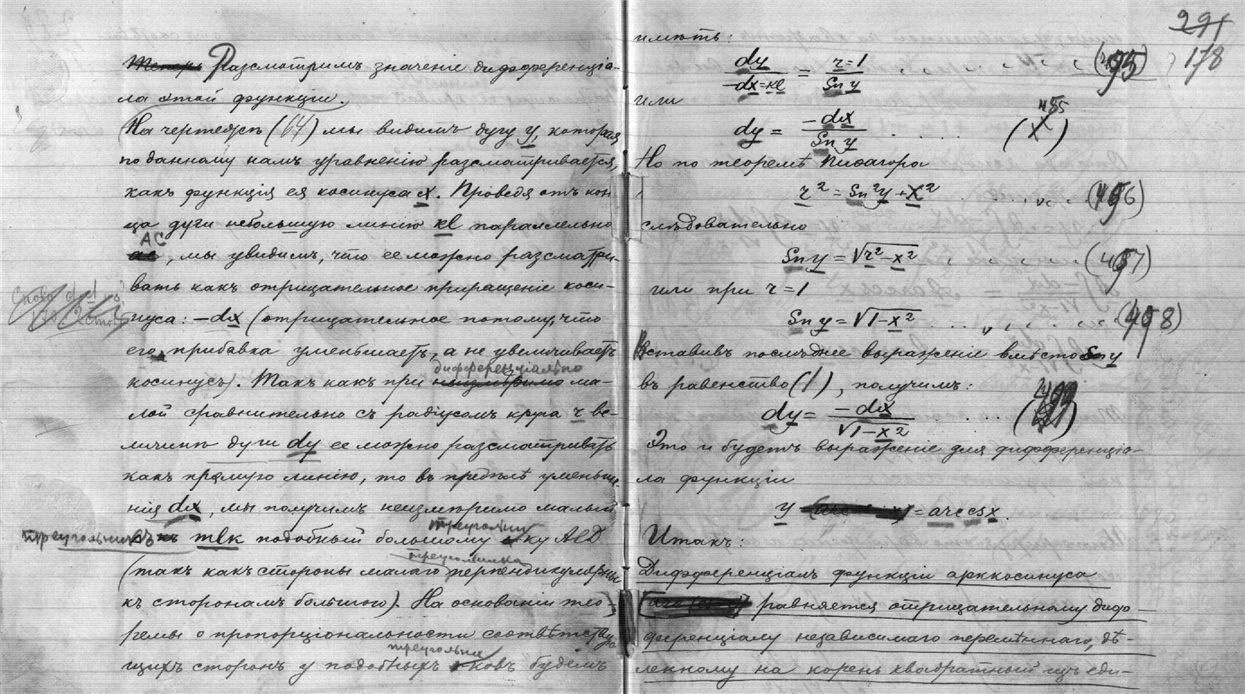 Разсмотримъ значеніе дифференціа-
ла этой функціи.
На чертежѣ (64) мы видимъ дугу y, которая,
по данному намъ уравненію разсматривается,
какъ функція ея косинуса x. Проведя отъ кон-
ца дуги небольшую линію kl параллельно
AC
, мы увидимъ, что ее можно разсматри-
вать какъ отрицательное приращеніе коси-
нуса: -dx (отрицательное потому, что
его прибавка уменьшаетъ, а не увеличиваетъ
дифференціально
косинусъ). Такъ какъ при неизмѣримо ма-
лой сравнительно съ радіусомъ круга r ве-
личинѣ дуги dy ее можно разсматривать
какъ прямую линію, то въ предѣлѣ уменьше-
нія dx, мы получимъ неизмѣримо малый
треугольни
треугольникъ mlk подобный большому ку ACD
треугольника
(такъ какъ стороны малаго перпендикулярны
къ сторонамъ большого). На основаніи тео-
ремы о пропорціональности соотвѣтствую-
треугольни
щихъ сторонъ у подобныхъ ковъ будемъ
291
178
имѣть:
dy / -dx=kl = r=1 / Sn y . . . . . . (495)
или
495
dy = -dx / Sn y . . ( )
Но по теоремѣ Пиѳагора
r² = Sn²y + x² . . . . (496)
слѣдовательно
Sn y = √r²-x² . . . . . . (497)
или при r=1
Sn y = √1-x² . . . . . . (498)
Вставивъ послѣднее выраженіе вмѣсто Sn y
въ равенство (1), получимъ:
dy = -dx / √1-x² . . . (499)
Это и будетъ выраженіе для дифференціа-
ла функціи
y = arccsx.
Итакъ:
Дифференціалъ функціи арккосинуса
равняется отрицательному диф-
ференціалу независимаго перемѣннаго, дѣ-
ленному на корень квадратный изъ еди-